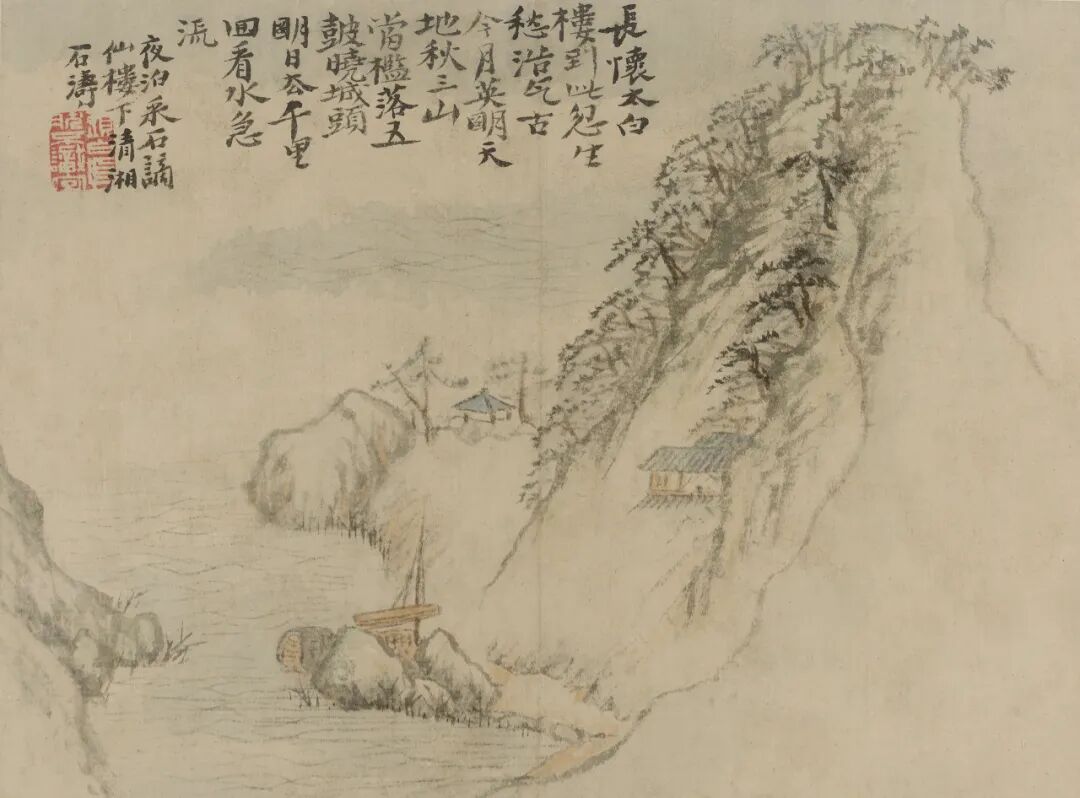 長懷太白
樓到此忽生
愁浩气古
今月英明天
地秋三山
當檻落五
鼓曉城頭
明日厺千里
回看水急
流
夜泊采石謫
仙樓下清湘
石濤